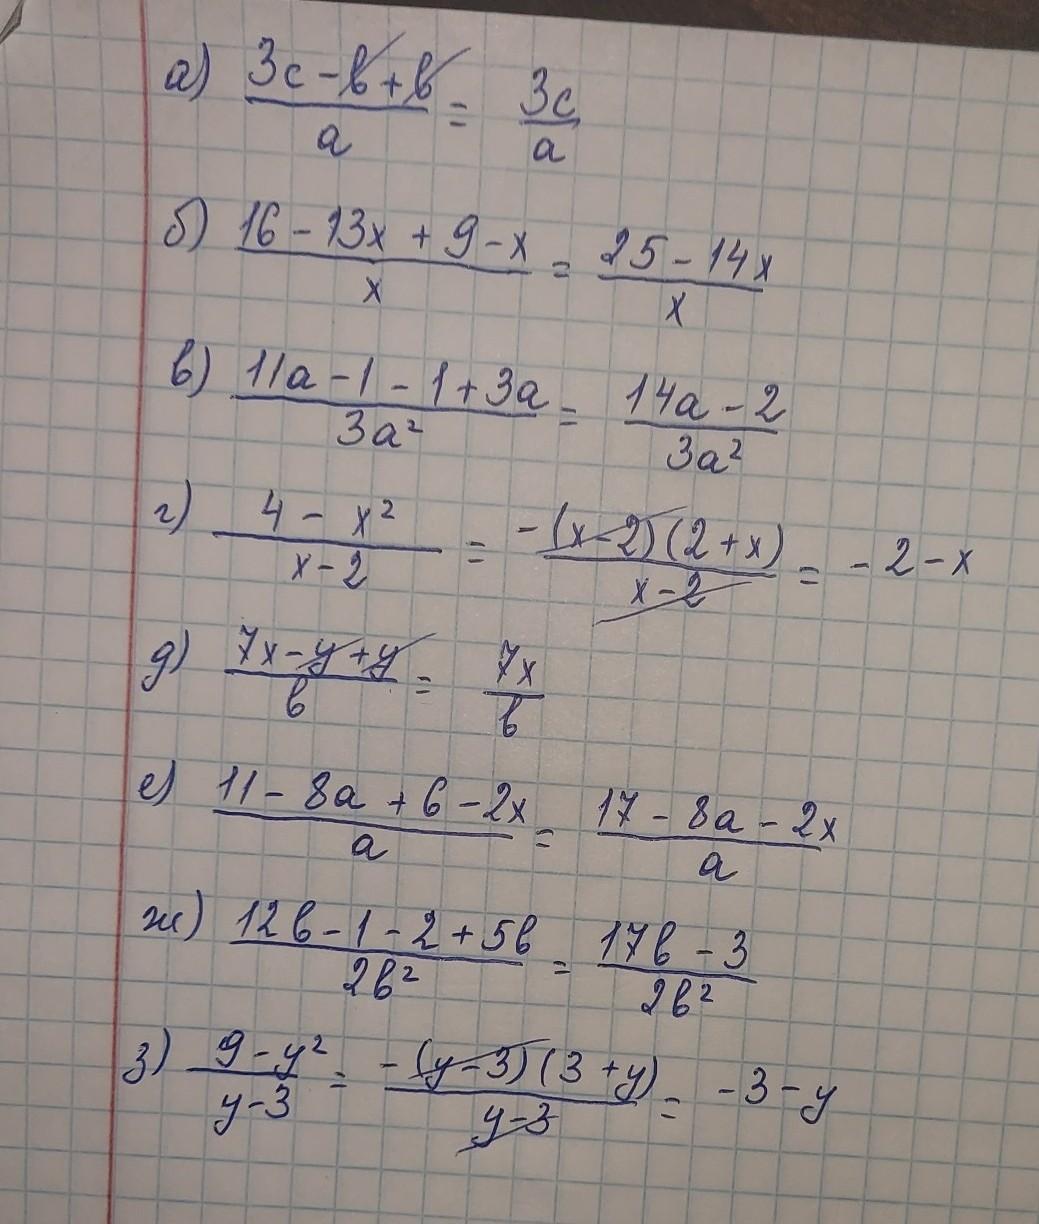 а) (3c - b + b)/a = 3c/a
б) (16 - 13x + 9 - x)/x = (25 - 14x)/x
в) (11a - 1 - 1 + 3a)/3a² = (14a - 2)/3a²
г) (4 - x²)/(x - 2) = -(x - 2)(2 + x)/(x - 2) = -2 - x
д) (7x - y + y)/b = 7x/b
е) (11 - 8a + 6 - 2x)/a = (17 - 8a - 2x)/a
ж) (12b - 1 - 2 + 5b)/2b² = (17b - 3)/2b²
з) (9 - y²)/(y - 3) = -(y - 3)(3 + y)/(y - 3) = -3 - y